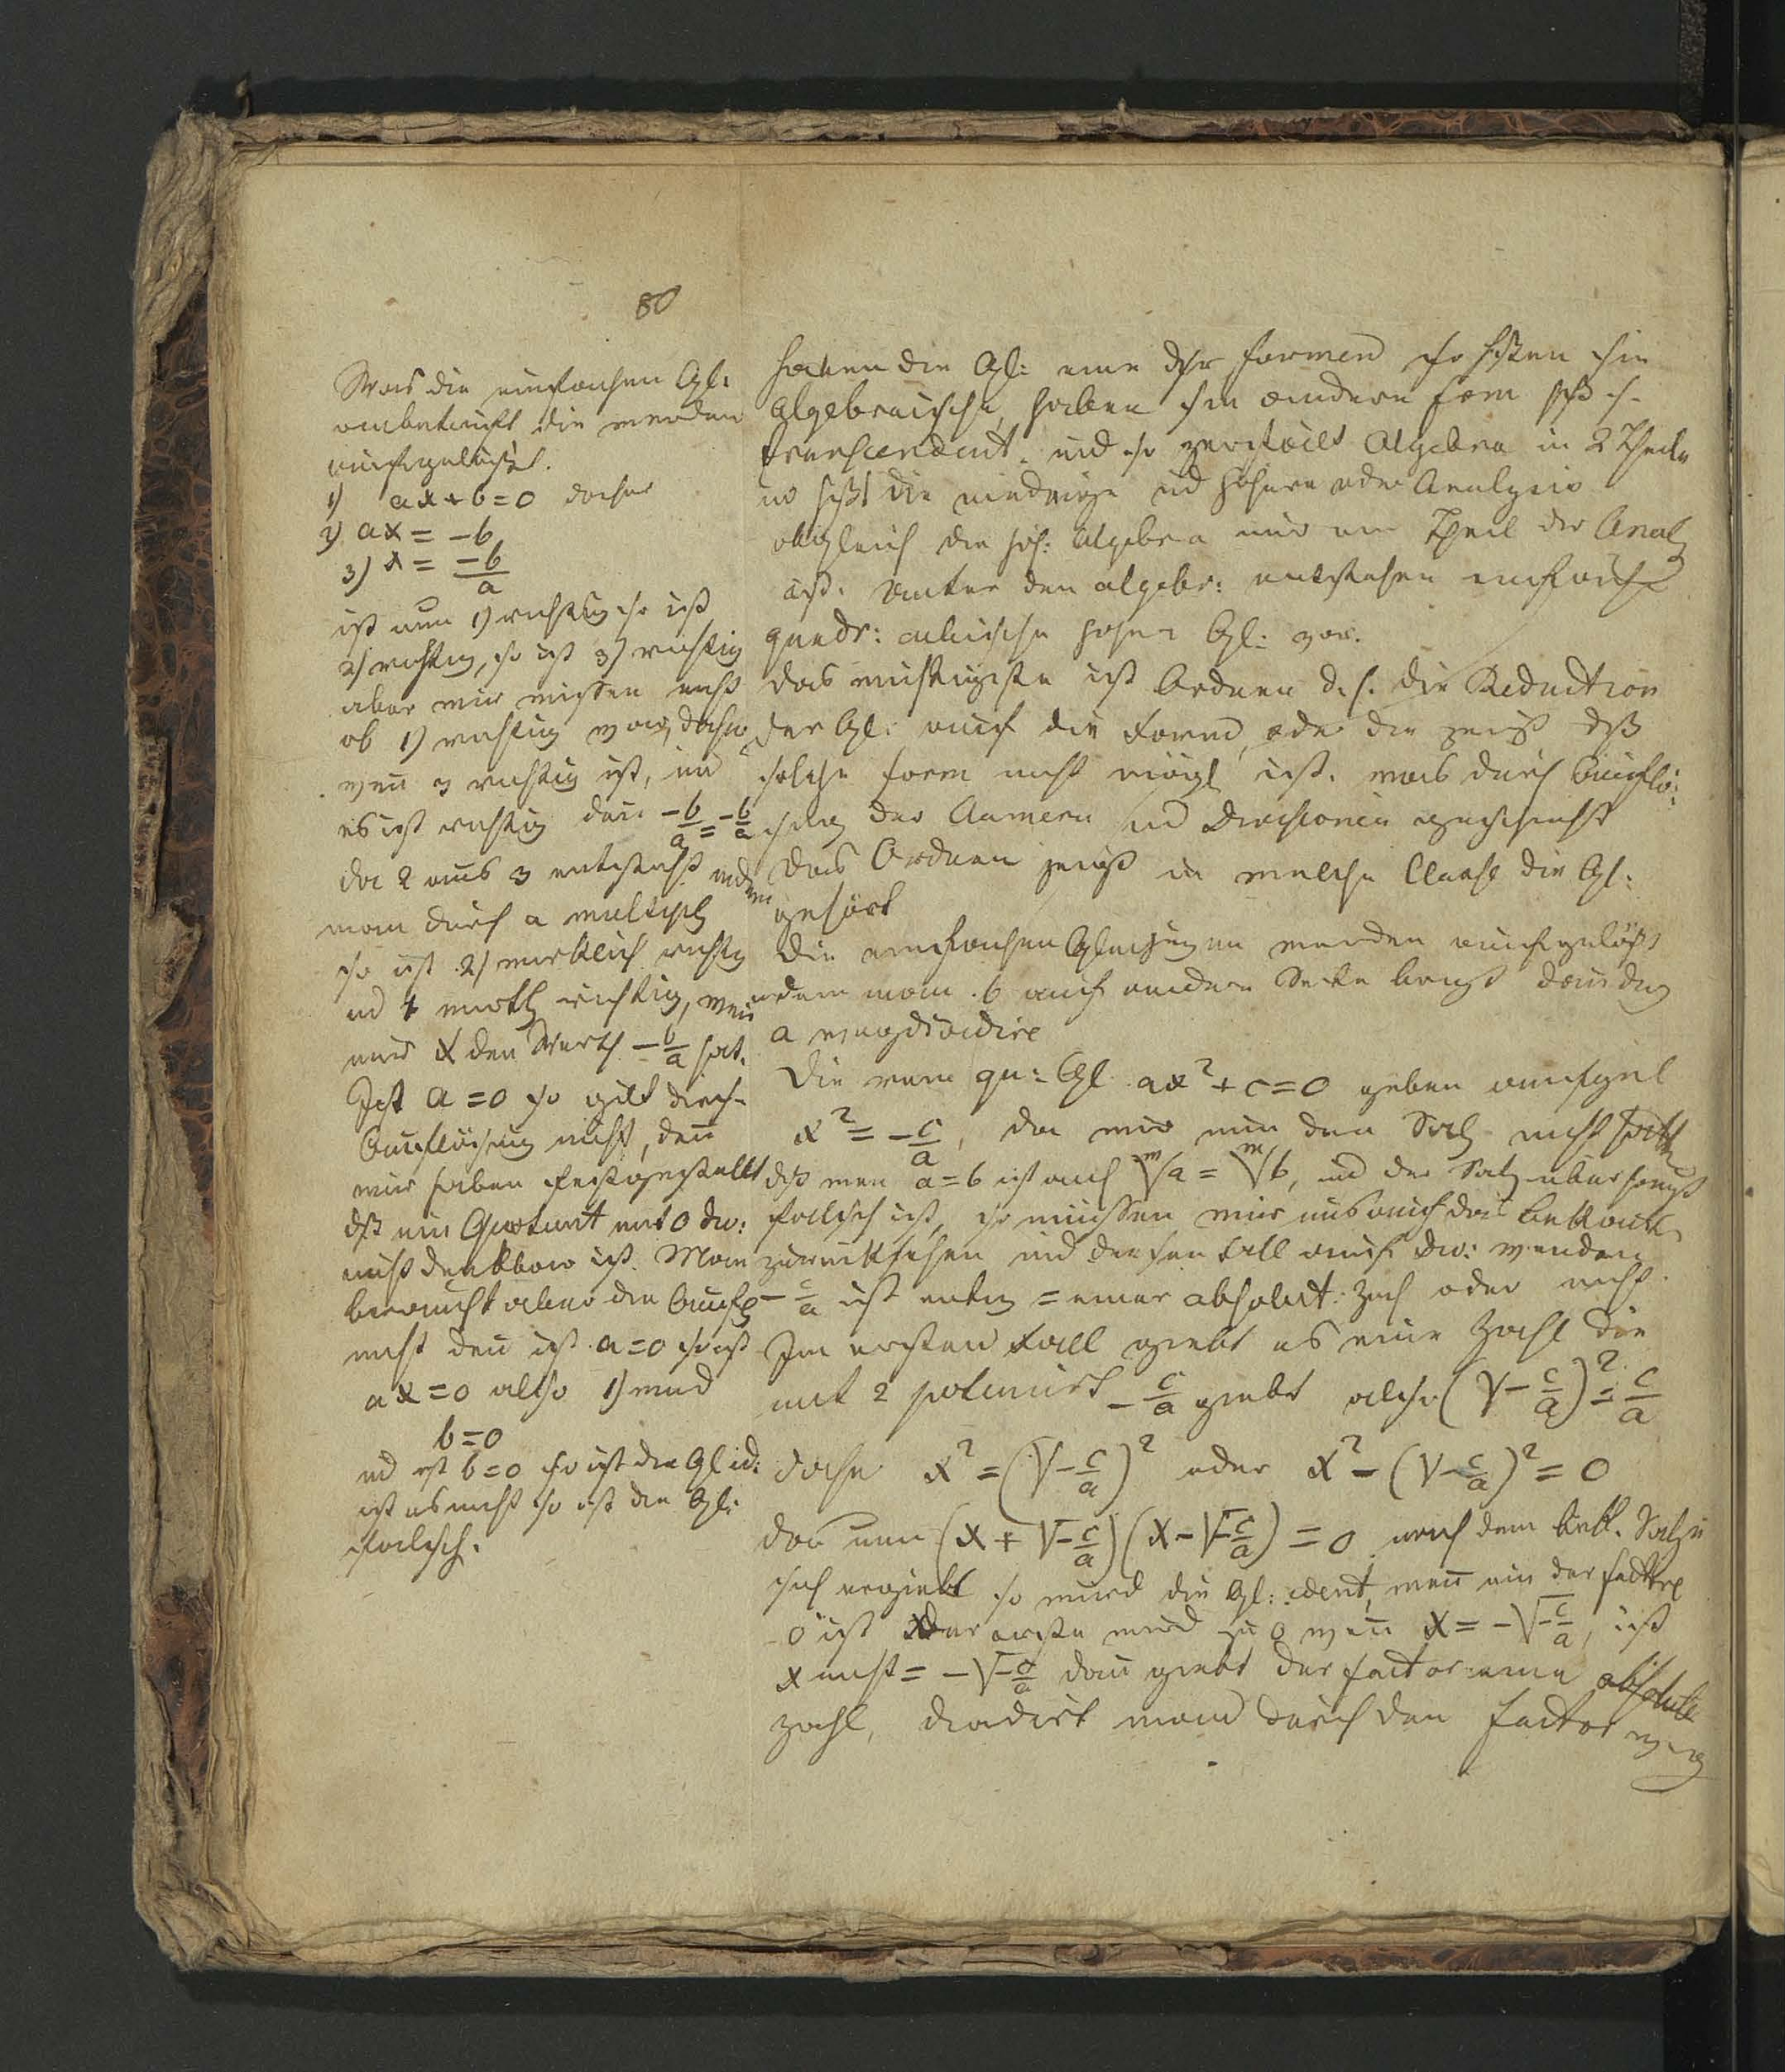 80
Was die einfachen Gl:
anbetrifft die werden
aufgelöst.
1) ax+b=0 daher
2) ax = -b
3) x = -b/a
ist nun 1) richtig so ist
2) richtig, so ist 3) richtig
aber wir wissen nicht
ob 1) richtig war, daher
wenn 3 richtig ist, und
es ist richtig denn -b/a = -b/a
da 2 aus 3 entsteht indem
man durch a multipl
so ist 2) wirklich richtig
und 1 wirkl richtig, wenn
nur x den Werth -b/a hat.
Ist a=0 so gilt diese
Auflösung nicht, denn
wir haben festgestellt
dß ein Quotient mit 0 div:
nicht denkbar ist. Man
braucht aber die Aufl
nicht denn ist a=0 so ist
ax=0 also 1) wird
b=0
und ist b=0 so ist die Gl id:
ist es nicht so ist die Gl:
falsch.
haben die Gl: eine dsr Formen so heißen sie
algebraische, haben sie andere Form heiß s.
transcendent. und so zerfällt Algebra in 2 Theile
die niedrige und höhere oder Analysis
obgleich die höh: Algebra nur ein Theil der Analy
ist. Unter den algebr: entstehen einfache
quadr: cubische höhere Gl: vor.
das wichtigste ist Ordnen d.h. die Reduction
der Gl: auf die Form, oder die zeigt dß
solche Form nicht mögl ist. was durch Auflö:
sung der Klamern und Divisionen geschieht
das Ordnen zeigt in welche Classe die Gl:
gehört
Die einfachen Gleichungen werden aufgelöst
indem man b auf andere Seite bringt dann durch
a wegdividirt
Die rein qu: Gl. ax²+c=0 geben aufgel
x² = -c/a, da wir nun den Satz nicht hatten
dß wenn a=b ist auch ᵐ√a = ᵐ√b, und der Satz überhaupt
falsch ist, so müssen wir uns auf das bekannte
zurücksehen und diesen Fall auf div: wenden
-c/a ist entw = einer absolut: Zahl oder nicht.
Im ersten Fall giebt es eine Zahl die
mit 2 potenzirt -c/a giebt also (√-c/a)² = c/a
daher x² = (√-c/a)² oder x² - (√-c/a)² = 0
da nun (x + √-c/a)(x - √-c/a) = 0 nach dem bek. Satze
sich ergiebt so wird die Gl: ident, wenn ein der Factore
0 ist der erste wird zu 0 wenn x = -√-c/a, ist
x nicht = -√-c/a dann giebt der Factor eine absolute
Zahl, dividirt man durch den Factor weg